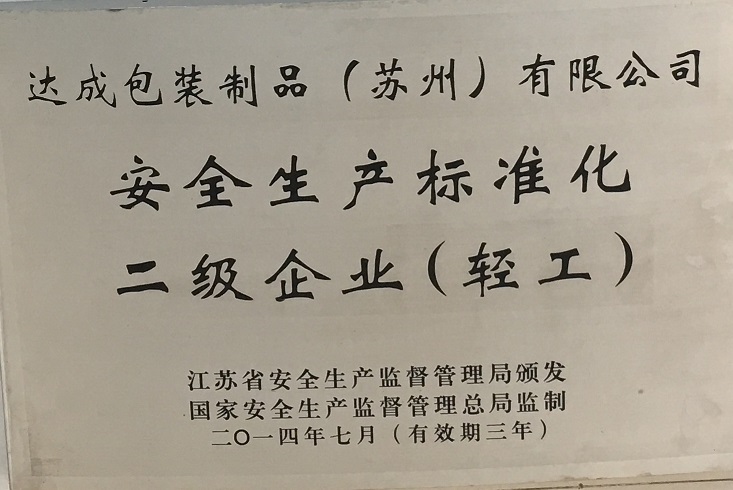 达成包装制品（苏州）有限公司
安全生产标准化
二级企业（轻工）
江苏省安全生产监督管理局颁发
国家安全生产监督管理总局监制
二〇一四年七月（有效期三年）